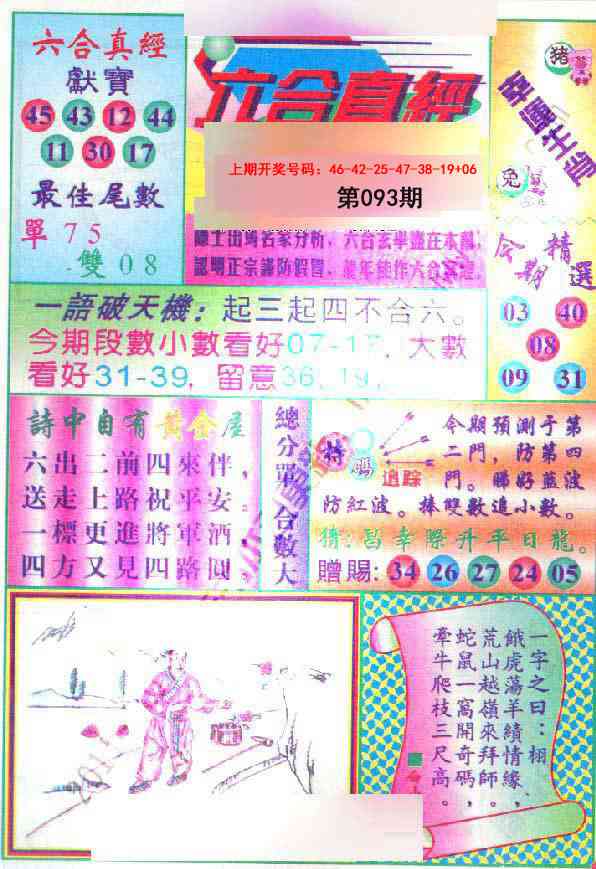 六合真經
獻寶
45 43 12 44
11 30 17
最佳尾數
單 75
雙 08
六合真經
上期开奖号码：46-42-25-47-38-19+06
第093期
豬
幸運生肖
兔
今期
精選
03 40
08
09 31
一語破天機：起三起四不合六。
今期段數小數看好07-17，大數
看好31-39，留意36,19，
詩中自有黃金屋
六出二前四來伴，
送走上路祝平安。
一標更進將軍酒，
四方又見四路圓。
總分單 合數大
特碼
追踪
今期預測于第
二門，防第四
門。睇好藍波
防紅波。捧雙數追小數。
猜：昌幸際升平日龍。
贈賜：34 26 27 24 05
一字之曰：栩
餓虎蕩羊績情緣，
荒山越嶺來拜師，
蛇鼠一窩開奇碼，
牽牛爬枝三尺高。